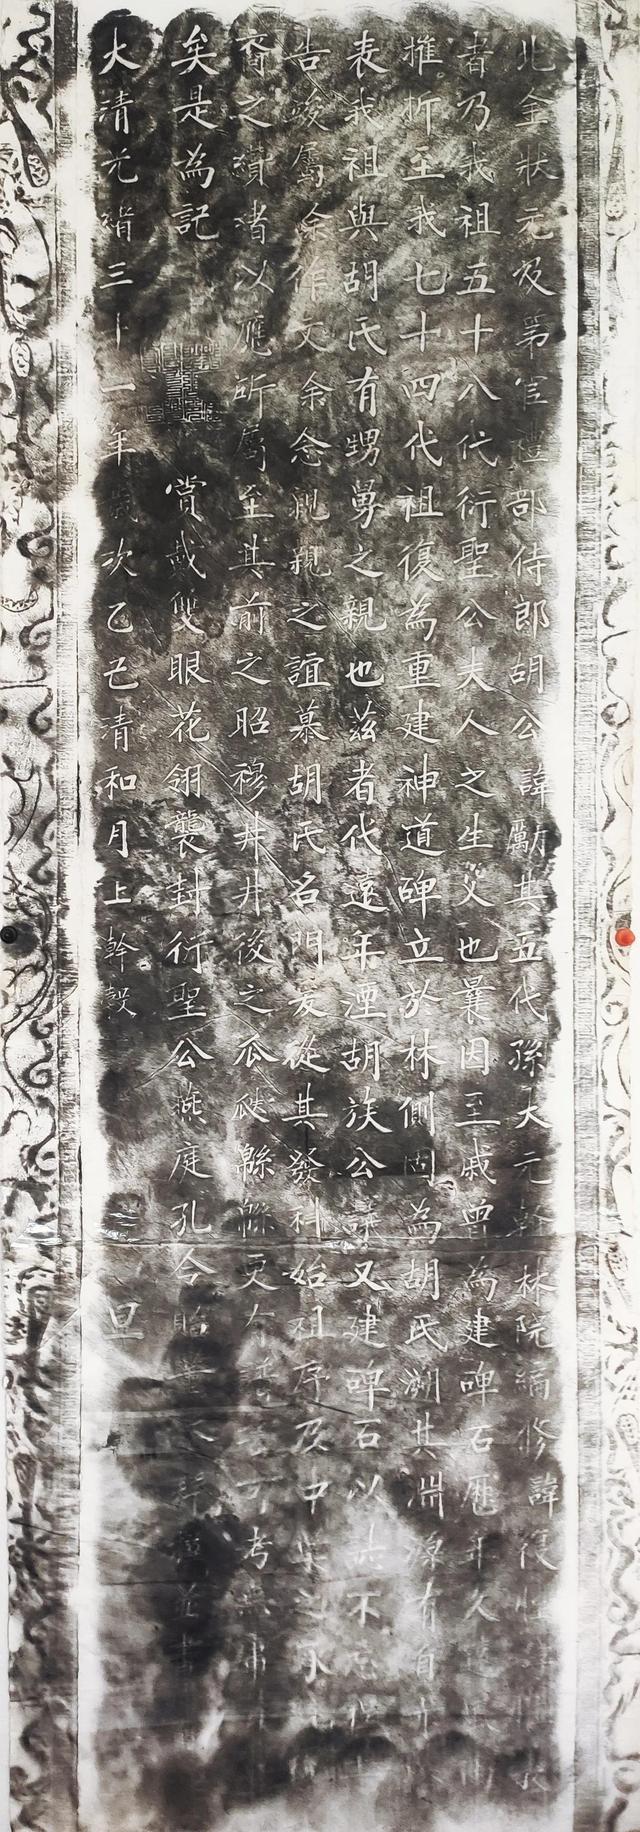 北金狀元及第官禮部侍郎胡公諱勵其五代孫大元翰林院編修諱復性
者乃我祖五十八代衍聖公夫人之生父也曩因至戚曾為建碑石歷年久
摧折至我七十四代祖復為重建神道碑立於林側固為胡氏溯其淵源有自
表我祖與胡氏有甥舅之親也茲者代遠年湮胡族公議又建碑石以示不忘
告竣屬余作文余念親親之誼慕胡氏名門爰從其發科始祖序及中
裔之纘渚以應所屬至其前之昭穆井井後之瓜瓞緜緜更有譜 可考無
矣是為記
賞戴雙眼花翎襲封衍聖公燕庭孔令貽 並書
大清光緒三十一年歲次乙巳清和月上幹穀旦